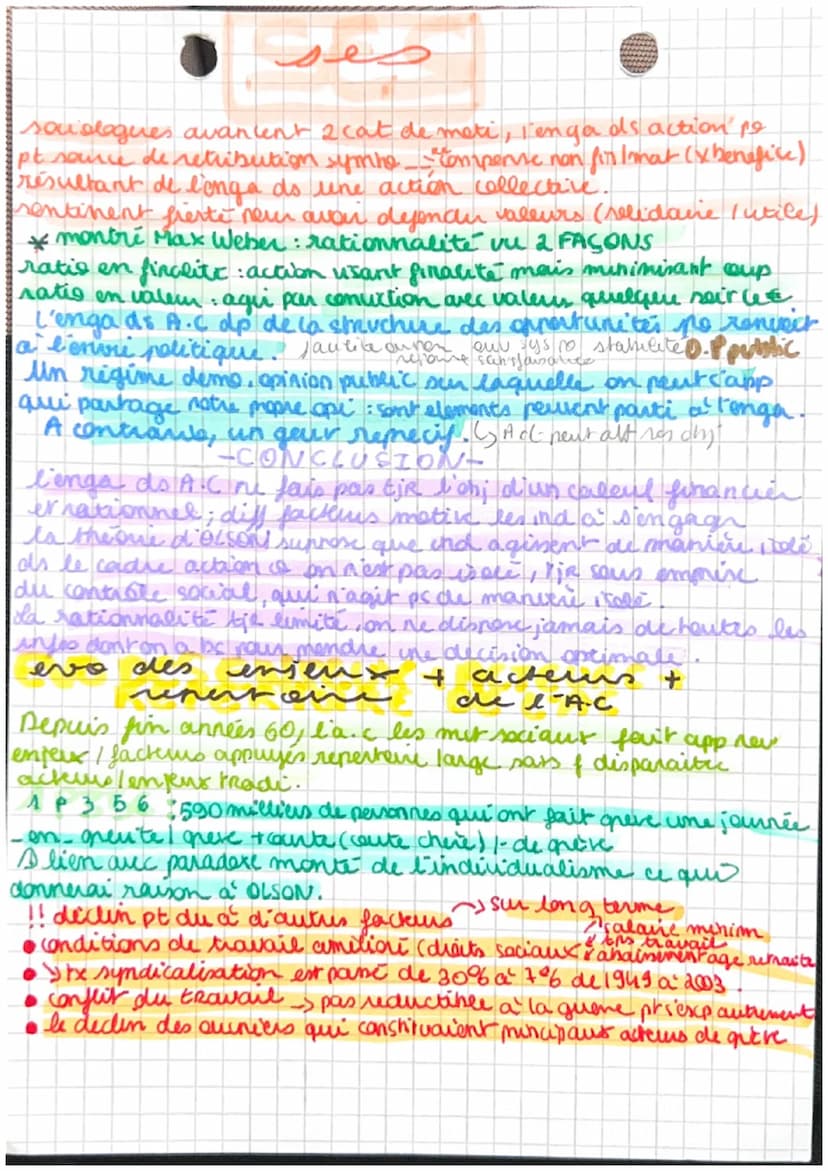 ses
sociologues avancent 2 cat de moti, l'enga ds action po
pt source de retribution symbo → "recompense non fin/mat (x benefice)
résultant de l'enga ds une action collective.
sentiment fierté pour avoir defendu valeurs (solidaire / utile)
* montré Max Weber : rationnalité vu 2 FAÇONS
ratio en finalité : action visant finalité mais minimisant coup
ratio en valeur : agir par conviction avec valeurs quelque soit le €
L'enga ds A.C dp de la structure des opportunités po renvoit
a l'enviri politique. facilite ou non ouv sys po stabilité O.P public
réponse satisfaisante
Un régime demo, opinion public sur laquelle on peut s'app
qui partage notre propre opi : sont elements peuvent parti à l'enga.
A contrario, un gouv repressif. ↳ AC peut att ses obj
-CONCLUSION-
L'enga ds A.C ne fais pas tjr l'obj d'un calcul financier
et rationnel ; diff facteurs motive les ind à s'engager
La théorie d'OLSON suppose que ind agissent de manière isolé
ds le cadre action co on n'est pas isolé, tjr sous emprise
du contrôle social, qui n'agit ps de manière isolé.
La rationnalité tjr limité, on ne dispose jamais de toutes les
infos dont on a bs pour prendre une décision optimale.
evo des enjeux + acteurs +
repertoire de l'AC
Depuis fin années 60, l'a.c les mvt sociaux fait app nov
enjeux / facteurs appuyés repertoire large sans f disparaitre
acteurs / enjeux tradi.
1 p 3 5 6 : 590 milliers de personnes qui ont fait greve une journée
- en - greute / greve + courte (coute chere) / - de grève
lien avec paradoxe monté de l'individualisme ce qui
donnerai raison à OLSON.
!! déclin pt du à d'autres facteurs → sur long terme
• conditions de travail amélioré (droits sociaux ↗ salaire minim
↘ tps travail
↘ abaissement age retraite
• ↘ tx syndicalisation est passé de 30% à 7% de 1949 à 2003.
• conflit du travail → pas reductible a la greve pt s'exp autrement
• le declin des ouvriers qui constituaient principaux acteurs de grève